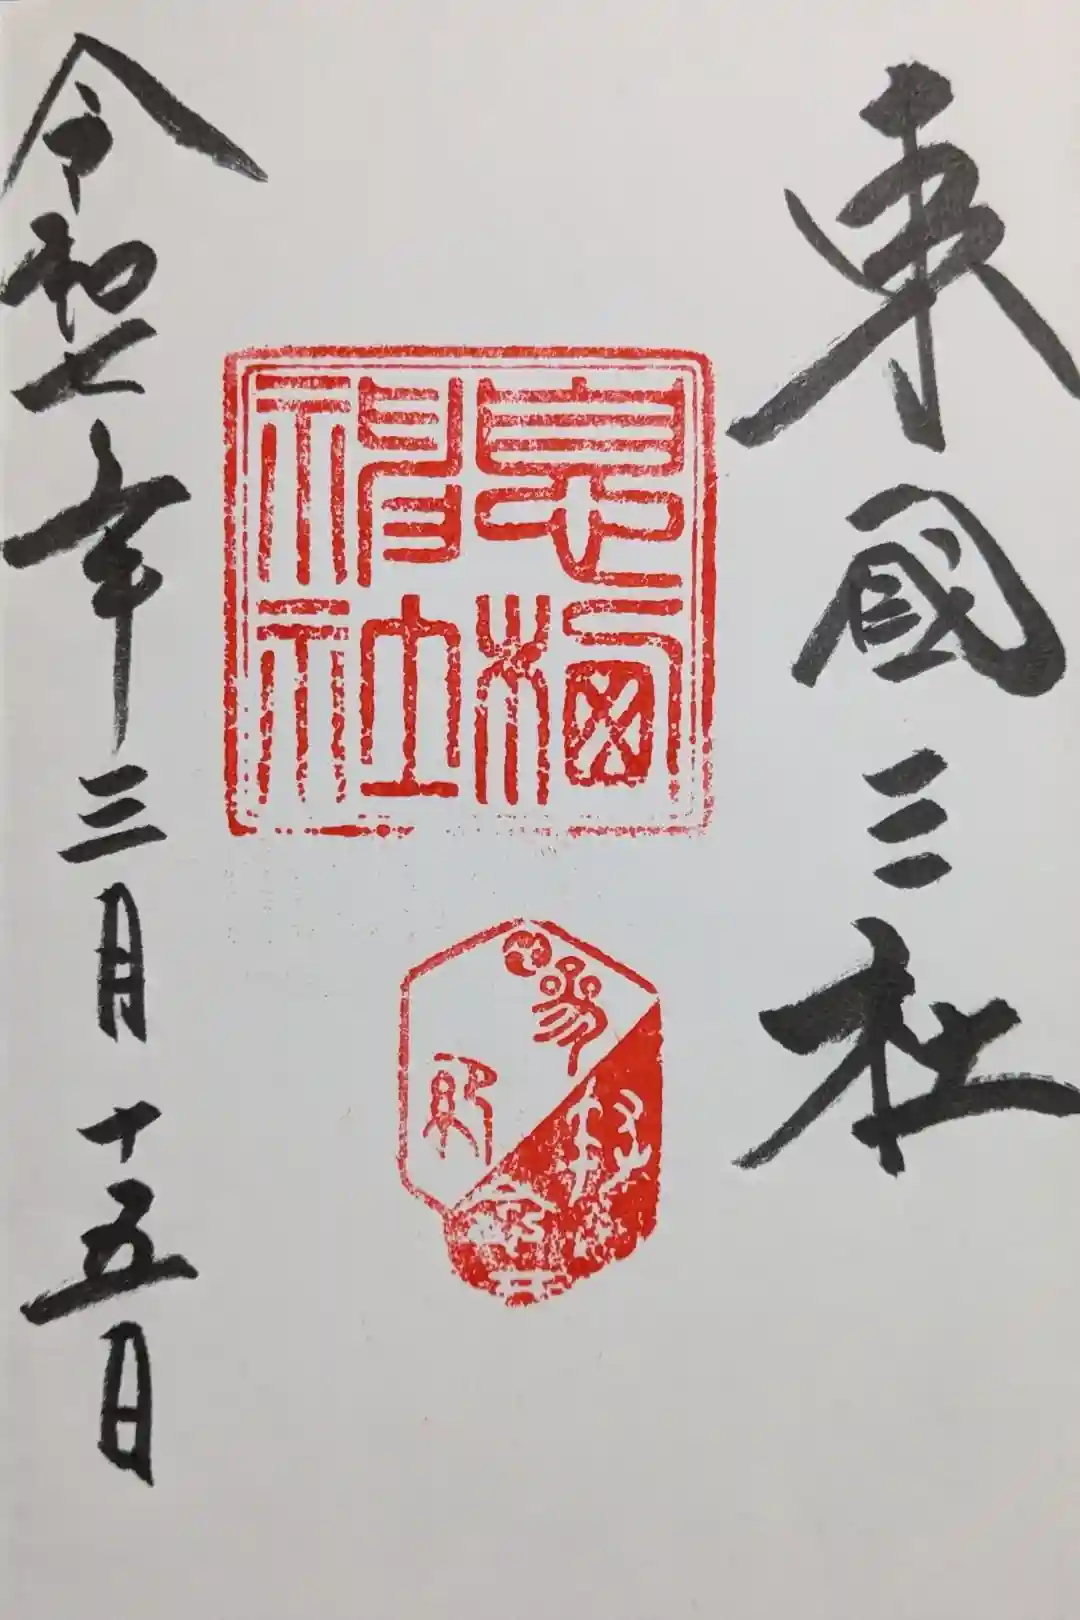 東國三社
息栖神社
令和七年三月十五日